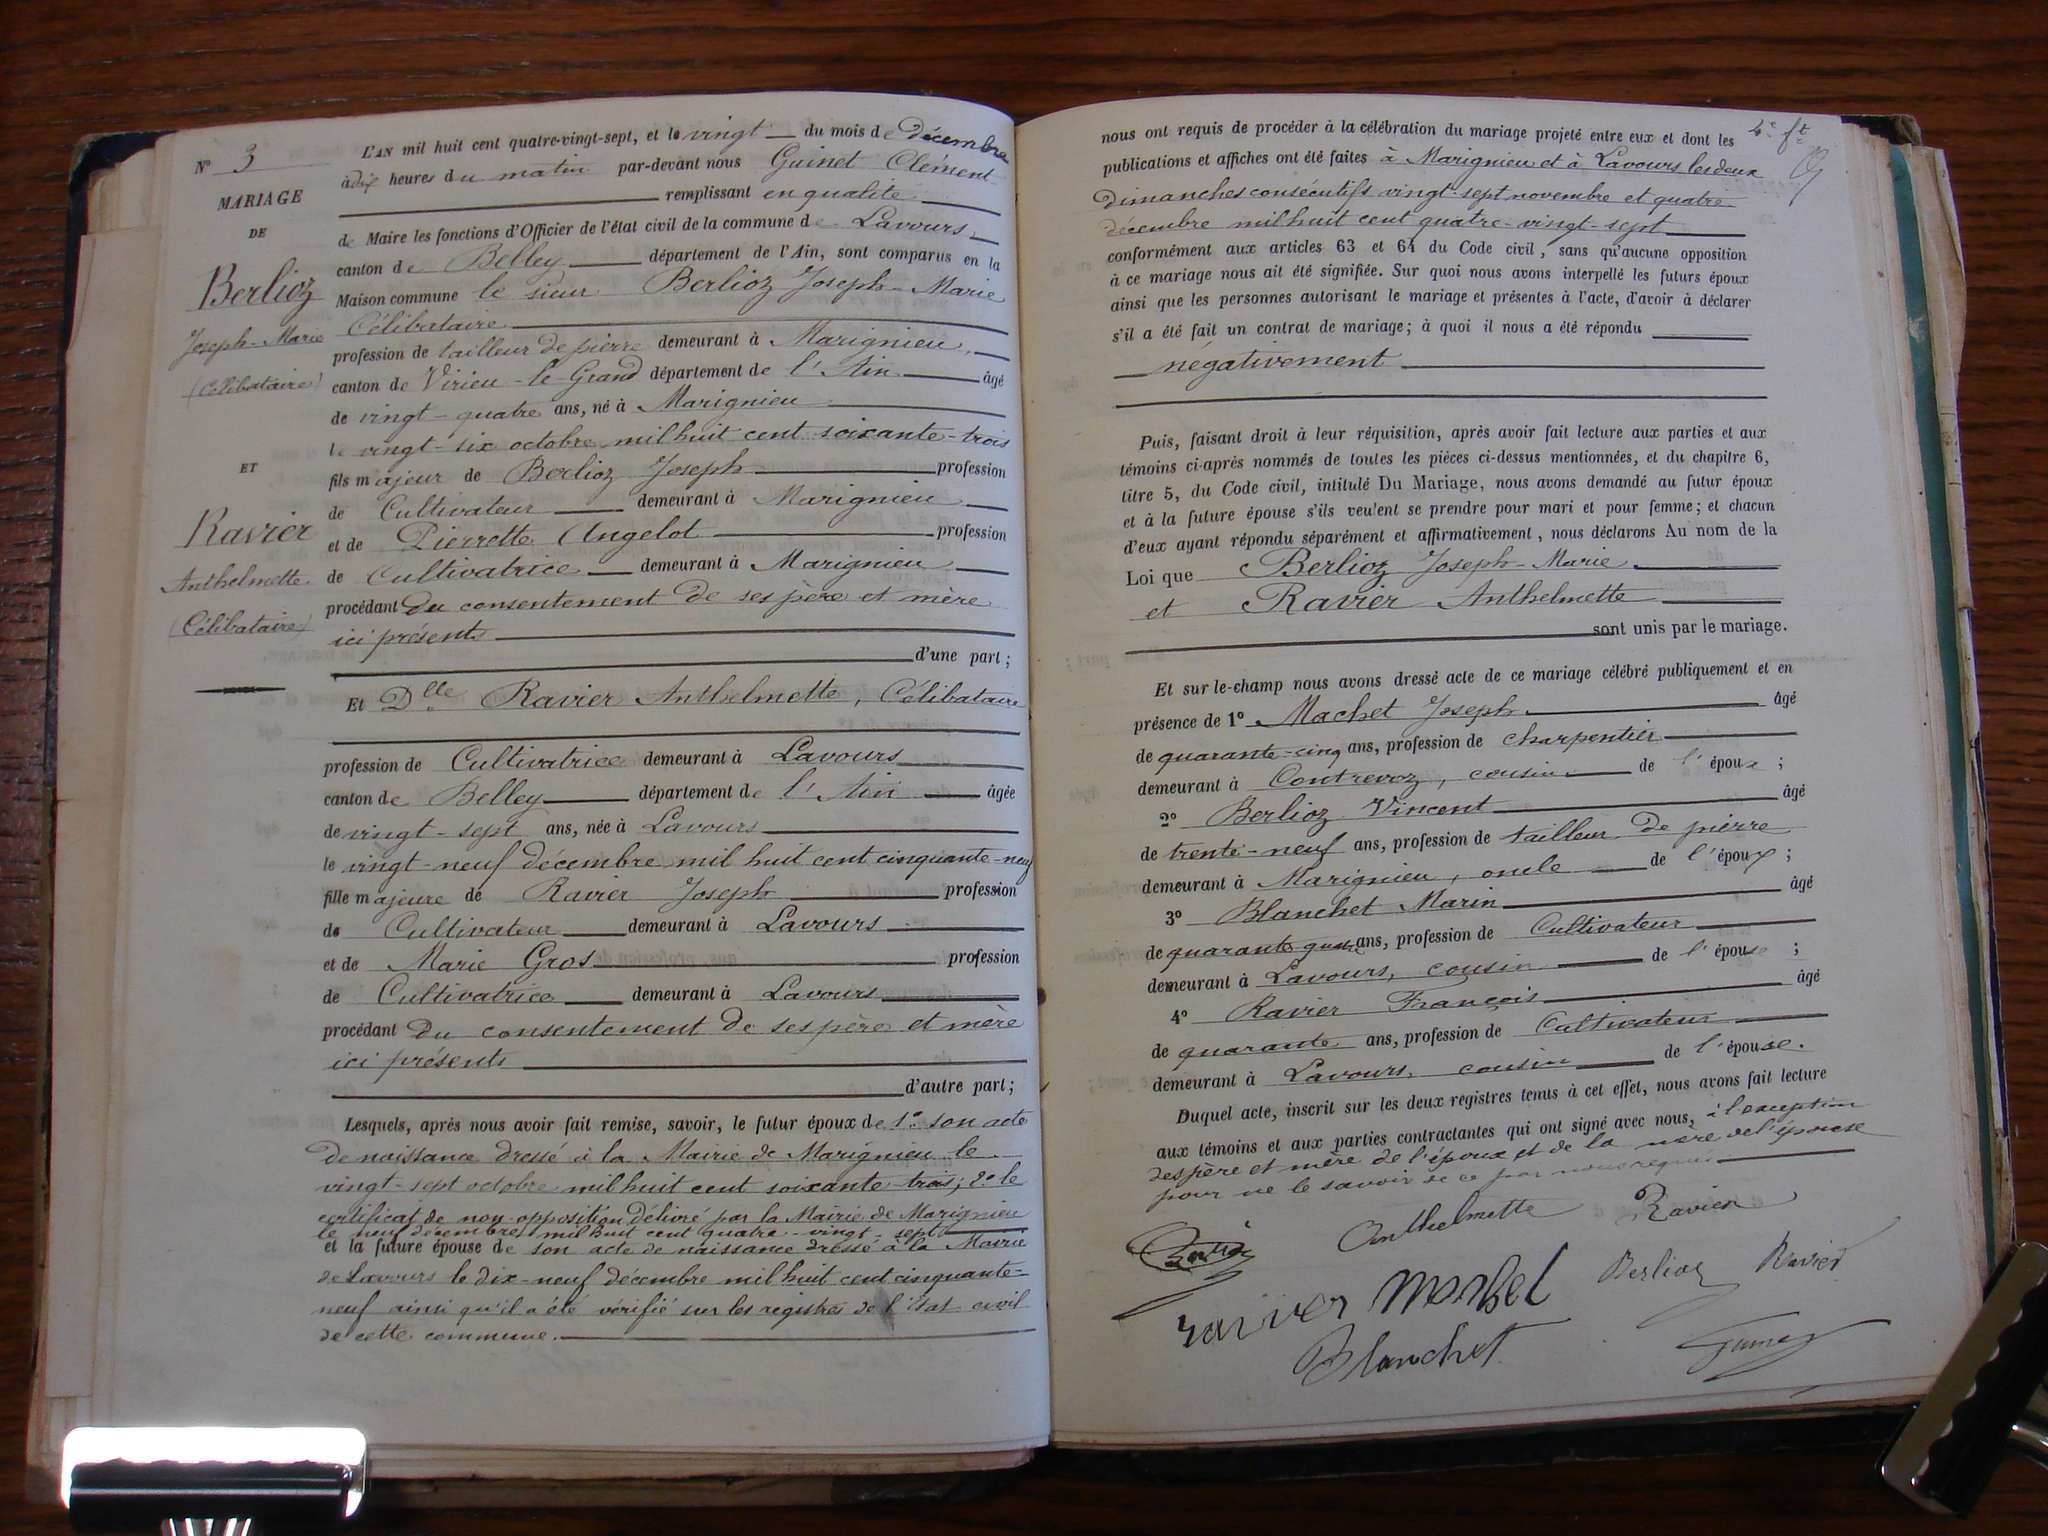 N° 3
MARIAGE
DE
Berlioz
Joseph-Marie
(Célibataire)
ET
Ravier
Anthelmette
(Célibataire)
L'AN mil huit cent quatre-vingt-sept, et le vingt du mois de décembre
à dix heures du matin par-devant nous Guinet Clément
remplissant en qualité
de Maire les fonctions d'Officier de l'état civil de la commune de Lavours
canton de Belley département de l'Ain, sont comparus en la
Maison commune le sieur Berlioz Joseph-Marie
Célibataire
profession de tailleur de pierre demeurant à Marignieu,
canton de Virieu-le-Grand département de l'Ain âgé
de vingt-quatre ans, né à Marignieu
le vingt-six octobre mil huit cent soixante-trois
fils majeur de Berlioz Joseph profession
de Cultivateur demeurant à Marignieu
et de Pierrette Angelot profession
de Cultivatrice demeurant à Marignieu
procédant du consentement de ses père et mère
ici présents
d'une part;
Et Dlle Ravier Anthelmette, Célibataire
profession de Cultivatrice demeurant à Lavours
canton de Belley département de l'Ain âgée
de vingt-sept ans, née à Lavours
le vingt-neuf décembre mil huit cent cinquante-neuf
fille majeure de Ravier Joseph profession
de Cultivateur demeurant à Lavours
et de Marie Gros profession
de Cultivatrice demeurant à Lavours
procédant du consentement de ses père et mère
ici présents
d'autre part;
Lesquels, après nous avoir fait remise, savoir, le futur époux de 1° son acte
de naissance dressé à la Mairie de Marignieu le
vingt-sept octobre mil huit cent soixante-trois; 2° le
certificat de non opposition délivré par la Mairie de Marignieu
le neuf décembre mil huit cent quatre-vingt-sept
et la future épouse de son acte de naissance dressé à la Mairie
de Lavours le dix-neuf décembre mil huit cent cinquante-
neuf ainsi qu'il a été vérifié sur les registres de l'état civil
de cette commune.
4e ft
nous ont requis de procéder à la célébration du mariage projeté entre eux et dont les
publications et affiches ont été faites à Marignieu et à Lavours les deux
dimanches consécutifs vingt-sept novembre et quatre
décembre mil huit cent quatre-vingt-sept
conformément aux articles 63 et 64 du Code civil, sans qu'aucune opposition
à ce mariage nous ait été signifiée. Sur quoi nous avons interpellé les futurs époux
ainsi que les personnes autorisant le mariage et présentes à l'acte, d'avoir à déclarer
s'il a été fait un contrat de mariage; à quoi il nous a été répondu
négativement
Puis, faisant droit à leur réquisition, après avoir fait lecture aux parties et aux
témoins ci-après nommés de toutes les pièces ci-dessus mentionnées, et du chapitre 6,
titre 5, du Code civil, intitulé Du Mariage, nous avons demandé au futur époux
et à la future épouse s'ils veulent se prendre pour mari et pour femme; et chacun
d'eux ayant répondu séparément et affirmativement, nous déclarons Au nom de la
Loi que Berlioz Joseph-Marie
et Ravier Anthelmette
sont unis par le mariage.
Et sur-le-champ nous avons dressé acte de ce mariage célébré publiquement et en
présence de 1° Machet Joseph âgé
de quarante-cinq ans, profession de charpentier
demeurant à Contrevoz, cousin de l'époux;
2° Berlioz Vincent âgé
de trente-neuf ans, profession de tailleur de pierre
demeurant à Marignieu, oncle de l'époux;
3° Blanchet Marin âgé
de quarante ans, profession de Cultivateur
demeurant à Lavours, cousin de l'épouse;
4° Ravier François âgé
de quarante ans, profession de Cultivateur
demeurant à Lavours, cousin de l'épouse.
Duquel acte, inscrit sur les deux registres tenus à cet effet, nous avons fait lecture
aux témoins et aux parties contractantes qui ont signé avec nous, à l'exception
des père et mère de l'époux et de la mère de l'épouse
pour ne le savoir de ce par nous requis
Berlioz Anthelmette Ravier
ravier Berlioz Ravier
Blanchet